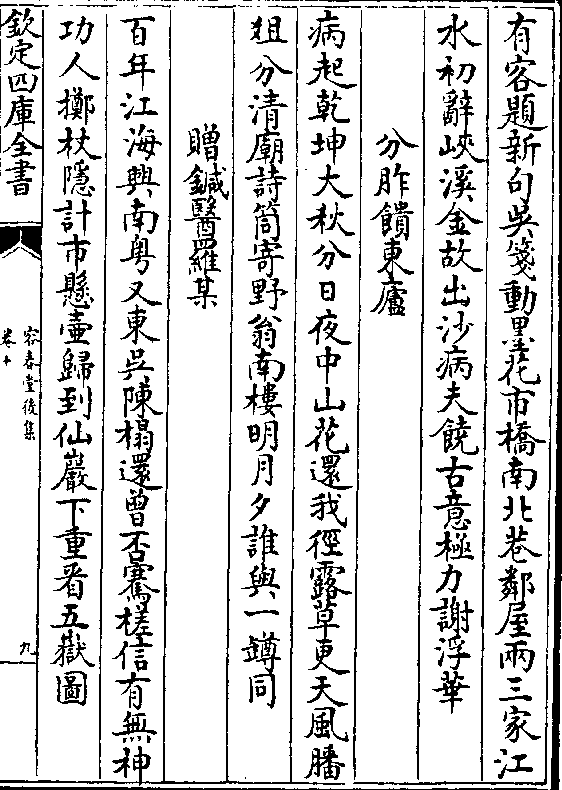 有客題新句吳箋動墨花市橋南北巷鄰屋兩三家江
水初辭峽溪金故出沙病夫饒古意極力謝浮華
分胙饋東廬
病起乾坤大秋分日夜中山花還我徑露草更天風膰
爼分清廟詩筒寄野翁南樓明月夕誰與一罇同
贈鍼醫羅某
百年江海興南粤又東吳陳榻還曾否騫槎信有無神
功人擲杖隱計市懸壺歸到仙巖下重看五嶽圖
欽定四庫全書
容春堂後集
卷十
九